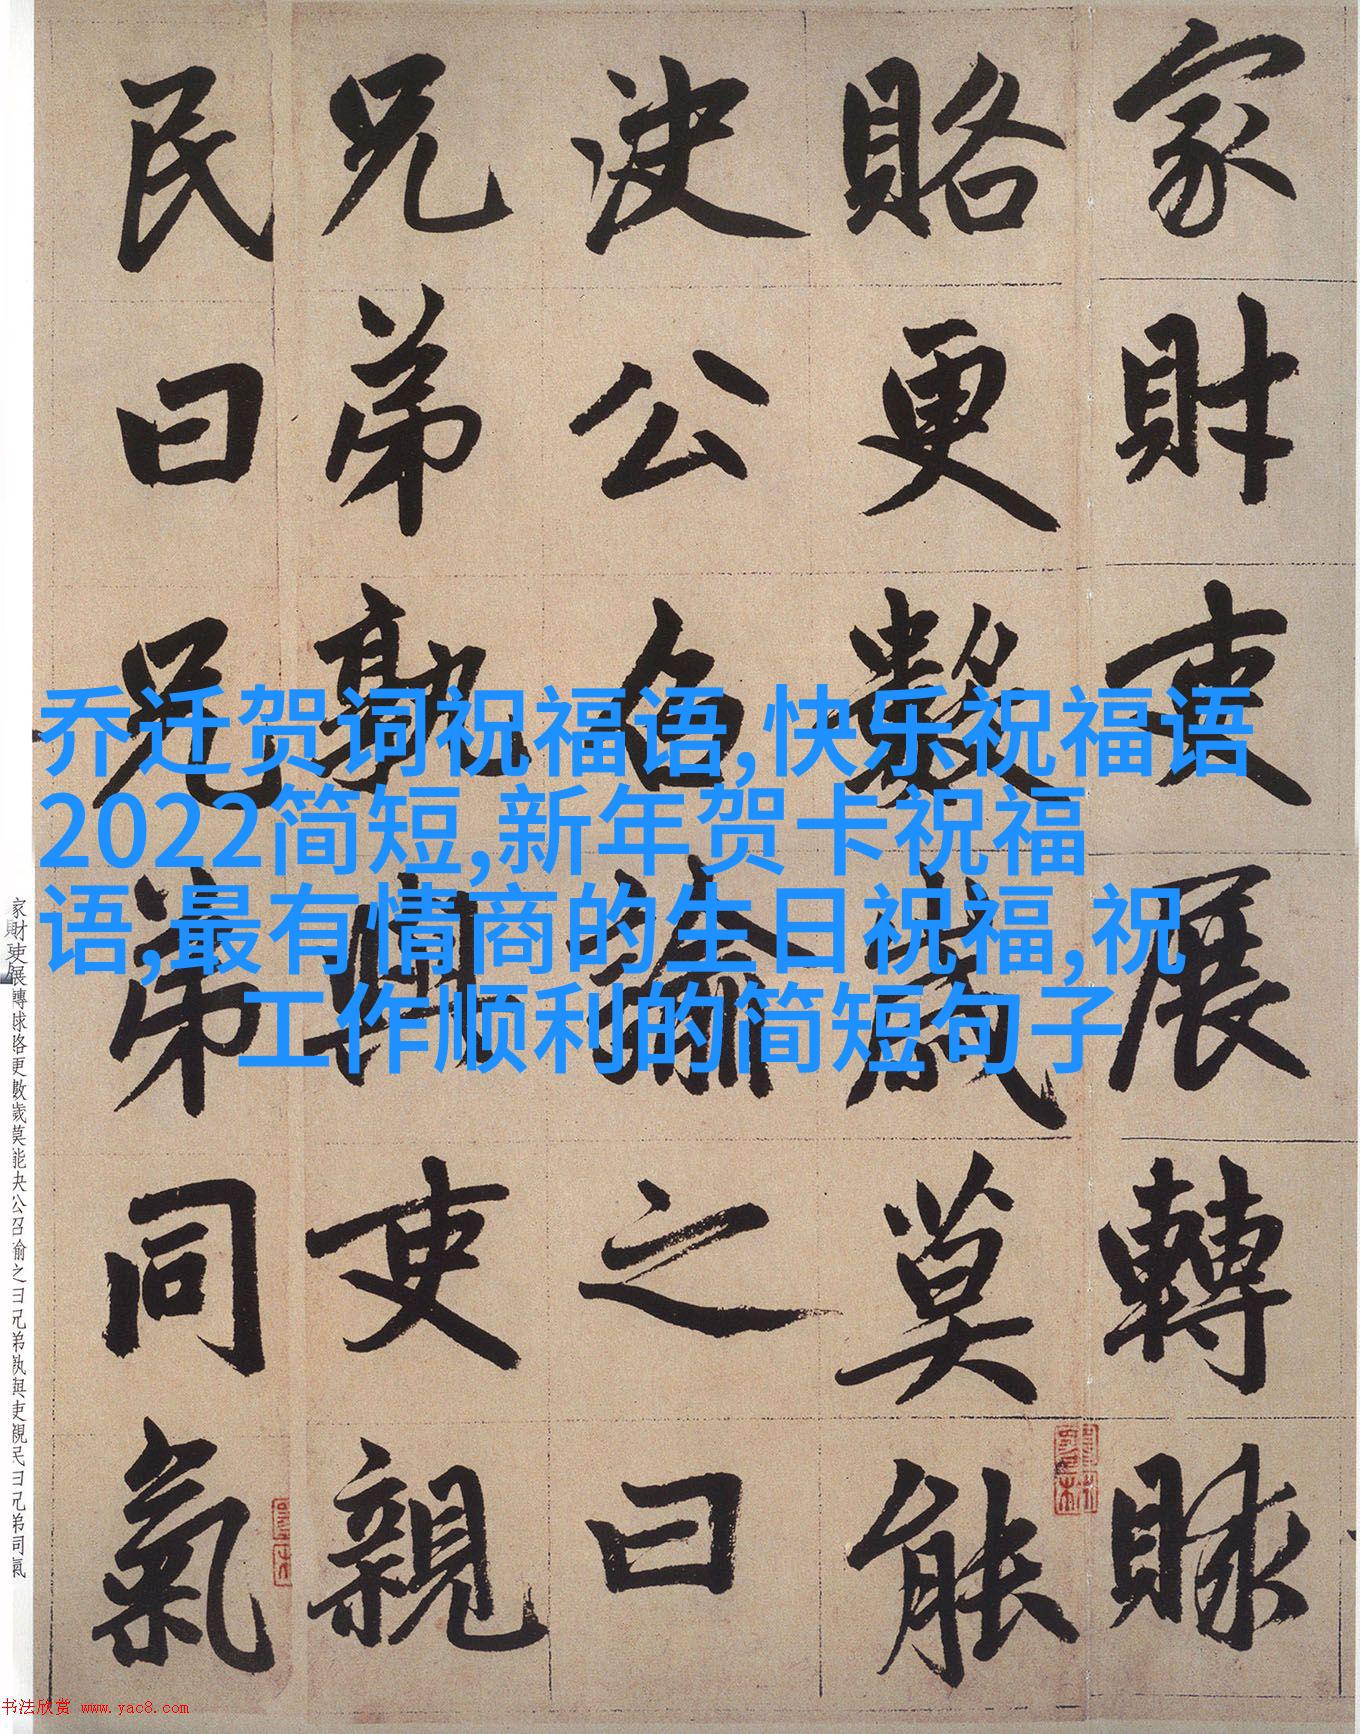 家財吏展轉賕
賂更數歲莫能
決公召諭之曰
兄弟孰與吏親
民曰兄弟同氣
乔迁贺词祝福语,快乐祝福语
2022简短,新年贺卡祝福
语,最有情商的生日祝福,祝
工作顺利的简短句子
家財吏展轉賕賂更數歲莫能決公召諭之曰兄弟孰與吏親民曰兄弟同氣
书法欣赏 www.yac8.com